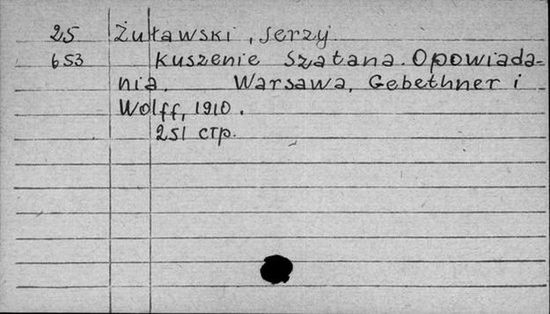 25 Żuławski, Jerzy
653 Kuszenie Szatana. Opowiada-
nia. Warsawa, Gebethner i
Wolff, 1910.
251 стр.